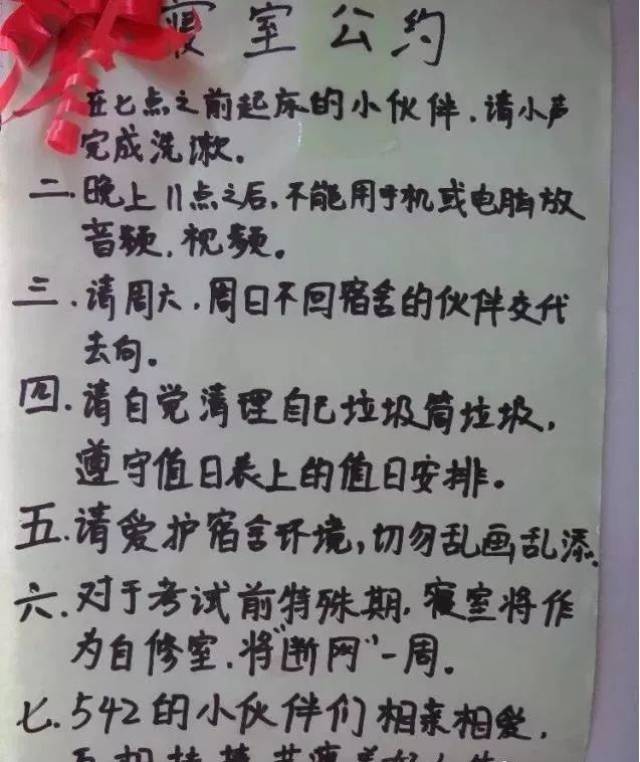 寝室公约
在七点之前起床的小伙伴，请小声
完成洗漱。
二.晚上11点之后，不能用手机或电脑放
音频，视频。
三.请周六，周日不回宿舍的伙伴交代
去向。
四.请自觉清理自己垃圾筒垃圾，
遵守值日表上的值日安排。
五.请爱护宿舍环境，切勿乱画乱添。
六.对于考试前特殊期，寝室将作
为自修室，将“断网”一周。
七.542的小伙伴们相亲相爱，